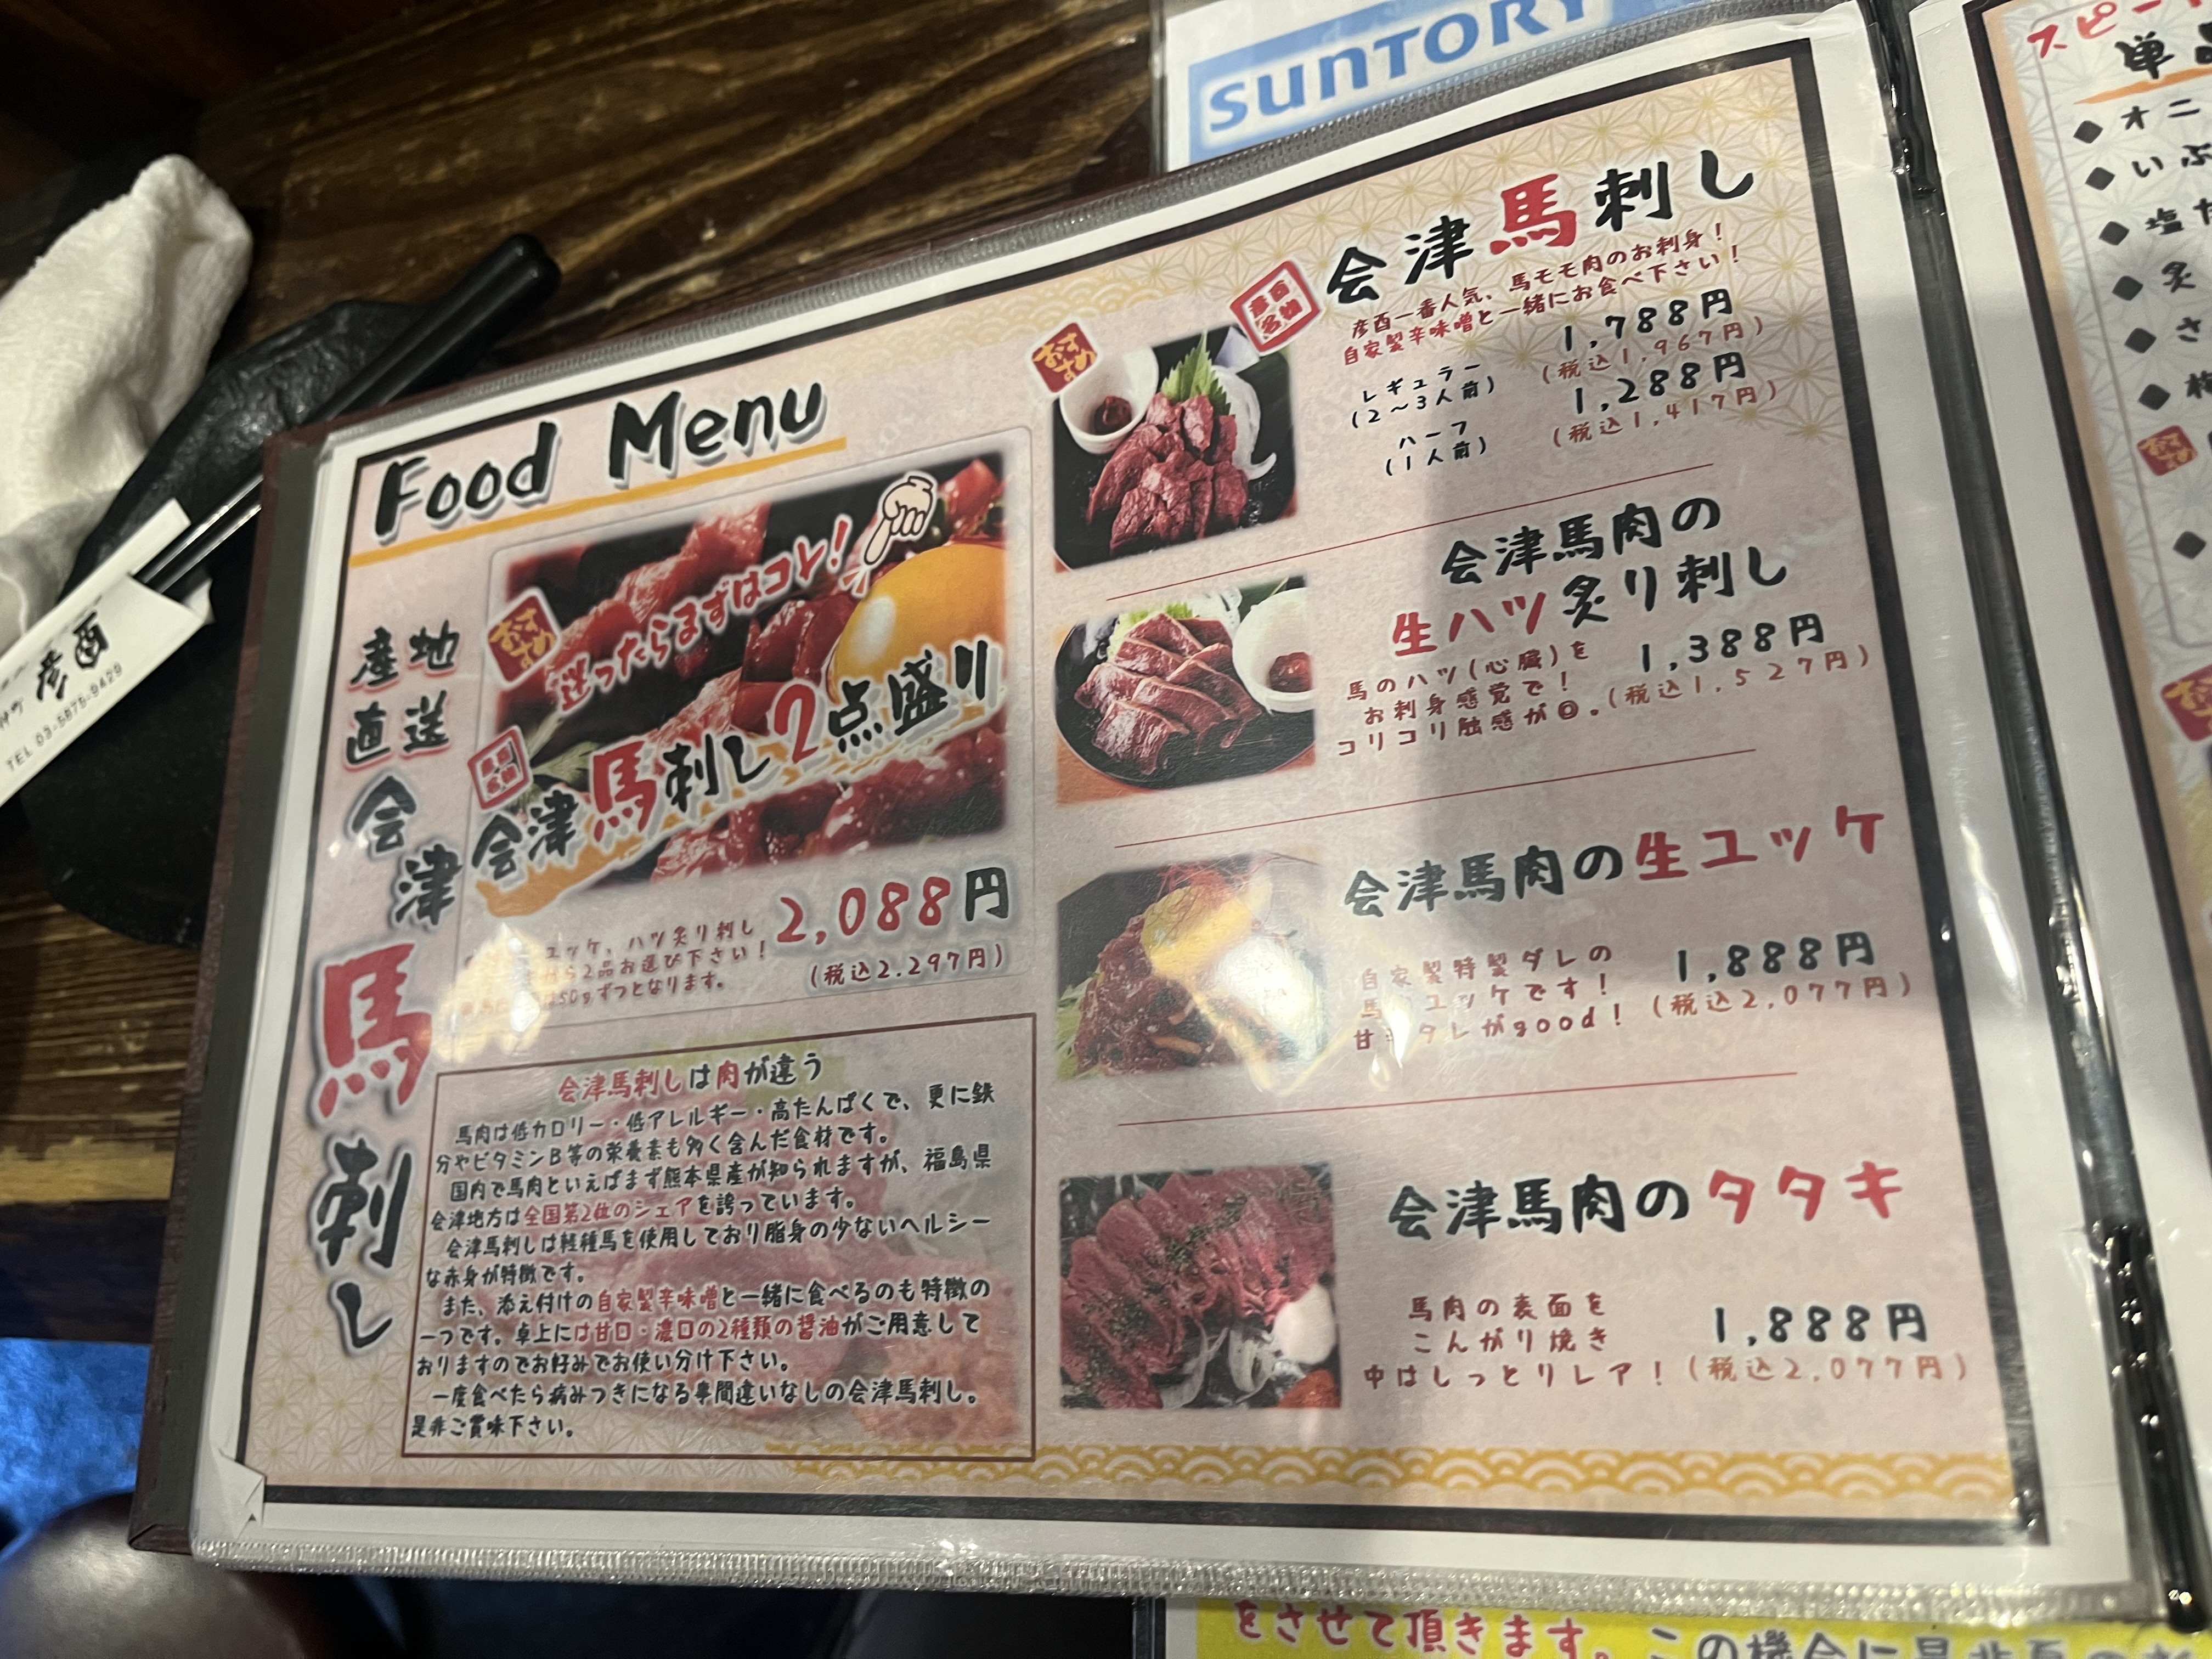 SUNTORY
Food Menu
産地
直送
会津
馬刺し
おすすめ
迷ったらまずはコレ!
彦酉名物
会津馬刺し2点盛り
2,088円
(税込2.297円)
ユッケ、ハツ炙り刺し
から2品お選び下さい!
50gずつとなります。
会津馬刺しは肉が違う
馬肉は低カロリー・低アレルギー・高たんぱくで、更に鉄
分やビタミンB等の栄養素も多く含んだ食材です。
国内で馬肉といえばまず熊本県産が知られますが、福島県
会津地方は全国第2位のシェアを誇っています。
会津馬刺しは軽種馬を使用しており脂身の少ないヘルシー
な赤身が特徴です。
また、添え付けの自家製辛味噌と一緒に食べるのも特徴の
一つです。卓上には甘口・濃口の2種類の醤油がご用意して
おりますのでお好みでお使い分け下さい。
一度食べたら病みつきになる事間違いなしの会津馬刺し。
是非ご賞味下さい。
おすすめ
彦酉名物
会津馬刺し
彦酉一番人気、馬モモ肉のお刺身!
自家製辛味噌と一緒にお食べ下さい!
レギュラー
(2〜3人前)
1,788円
(税込1,967円)
ハーフ
(1人前)
1,288円
(税込1,417円)
会津馬肉の
生ハツ炙り刺し
馬のハツ(心臓)を
お刺身感覚で!
コリコリ触感が◎。
1,388円
(税込1,527円)
会津馬肉の生ユッケ
自家製特製ダレの
馬 ユッケです!
甘 タレがgood!
1,888円
(税込2,077円)
会津馬肉のタタキ
馬肉の表面を
こんがり焼き
中はしっとりレア!
1,888円
(税込2,077円)
スピー
単
◆オニ
◆いぶ
◆塩
◆炙
◆さ
おすすめ
彦酉
TEL 03-5875-9429
をさせて頂きます。この機会に是非